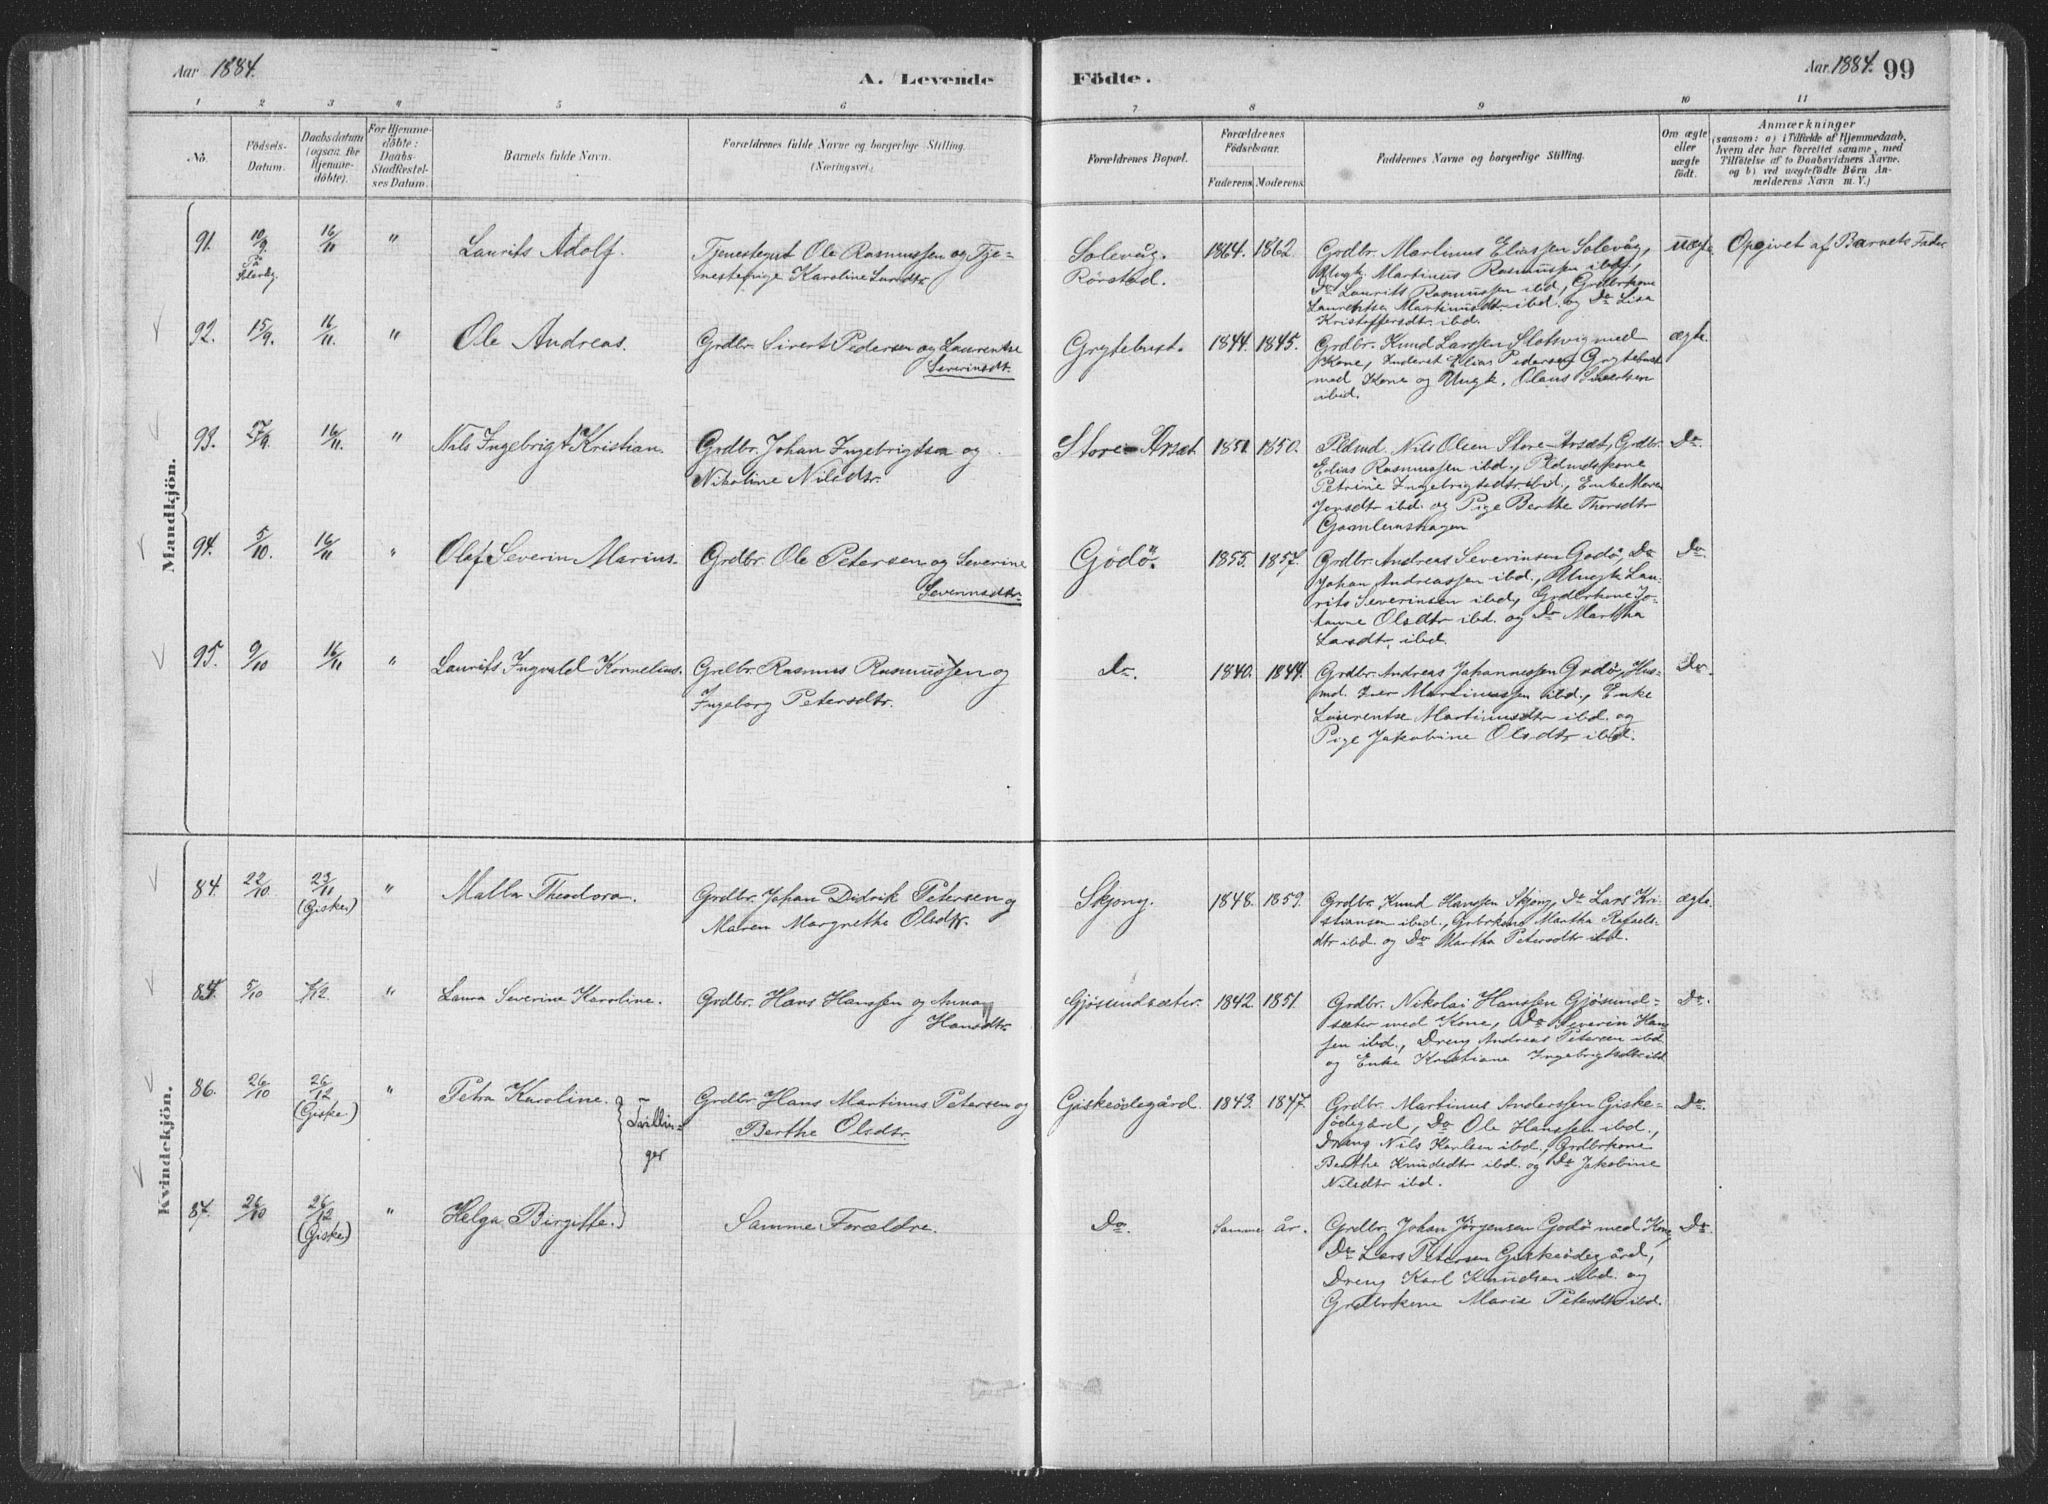 Aar 1884.
A. Levende Födte.
Aar 1884. 99
1 2 3 4 5 6 7 8 9 10 11
No.
Födsels-
Datum.
Daabsdatum
(ogsaa for
Hjemme-
döbte).
For Hjemme-
döbte:
Daabs-
Stadfæstel-
ses Datum.
Barnets fulde Navn.
Forældrenes fulde Navne og borgerlige Stilling.
(Næringsvei.)
Forældrenes Bopæl.
Forældrenes
Födselsaar.
Faderens Moderens
Faddernes Navne og borgerlige Stilling.
Om ægte
eller
uægte
födt.
Anmærkninger
(saasom: a) i Tilfælde af Hjemmedaab,
hvem der har forrettet samme, med
Tilföielse af to Daabsvidners Navne,
og b) ved uægtefödte Börn An-
melderens Navn m. V.)
Mandkjön.
91. 10/9 På 16/11 " Laurits Adolf. Tjenestegut Ole Rasmussen og Tje-
nestepige Karoline
Solevåg.
Rörstad.
1864. 1862. Grdbr. Martinus Eliassen Solevåg,
Ungk. Martinus Rasmussen ibd.,
Do Laurits Rasmussen ibd, Grdbrkone
Laurentse Martinusdtr. ibd. og Do Lisa
Kristoffersdtr. ibd.
uægte Opgivet af Barnets Fader
92. 15/9. 16/11. " Ole Andreas. Grdbr. Sivert Pedersen og Laurentse
Severinsdtr.
Grytebust. 1844. 1845. Grdbr. Knud Larssen Slotsvig med
Kone, Inderst Elias Pedersen Grytebust
med Kone og Ungk. Olaus Sivertsen
ibid.
ægte.
93. 27/9. 16/11. " Nils Ingebrigt Kristian. Grdbr. Johan Ingebrigtsen og
Nikoline Nilsdtr.
Store-Arsæt 1851. 1850. Pldsmd. Nils Olsen Store-Arsæt, Grdbr.
Elias Rasmussen ibd., Pldsmdskone
Petrine Ingebrigtsdtr ibd., Enke Maren
Jonsdtr ibd. og Pige Berthe Thorsdtr
Gamlemshagen
Do.
94. 5/10. 16/11 " Olaf Severin Marius. Grdbr. Ole Petersen og Severine
Severinsdtr.
Gödö. 1855. 1857. Grdbr. Andreas Severinsen Godö, Do
Johan Andreassen ibd., Ungk. Lau-
rits Severinsen ibd., Grdbrkone Jo-
hanne Olsdtr ibd. og Do Martha
Larsdtr. ibd.
Do.
95. 9/10 16/11 " Laurits Ingvald Kornelius. Grdbr. Rasmus Rasmussen og
Ingeborg Petersdtr.
Do. 1840. 1844. Grdbr. Andreas Johannessen Godö, Hus-
md. Iver Martinussen ibd., Enke
Laurentse Martinusdtr ibd. og
Pige Jakobine Olsdtr ibd.
Do.
Kvindekjön.
84. 22/10 23/11 (Giske) " Malla Theodora. Grdbr. Johan Didrik Petersen og
Maren Margrethe Olsdtr.
Skjong. 1848. 1859. Grdbr. Knud Hanssen Skjong, Do Lars Kri-
stiansen ibd., Grbrkone Martha Rafaels-
dtr ibd. og Do Martha Petersdtr ibd.
ægte.
85. 5/10 " Laura Severine Karoline. Grdbr. Hans Hanssen og Anna
Hansdtr.
Gjösundsæter. 1842. 1851. Grdbr. Nikolai Hanssen Gjösund-
sæter med Kone, Do Severin Han-
sen ibd., Dreng Andreas Petersen ibd
og Enke Kristiane Ingebrigtsdtr ibd
Do.
86. 26/10 26/12 (Giske) " Petra Karoline. Tvillin-
ger
Grdbr. Hans Martinus Petersen og
Berthe Olsdtr.
Giskeödegård. 1843. 1847. Grdbr. Martinus Anderssen Giske-
ödegård, Do Ole Hanssen ibd.,
Dreng Nils Karlsen ibd., Grdbrkone
Berthe Knudsdtr ibd. og Do Jakobine
Nilsdtr ibd.
Do.
87. 26/10 26/12 (Giske) " Helga Birgitte. Samme Forældre. Do. Samme år. Grdbr. Johan Jörgensen Godö med Kone,
Do Lars Petersen Giskeödegård,
Dreng Karl Knudsen ibd. og
Grdbrkone Marie Petersdtr ibd.
Do.